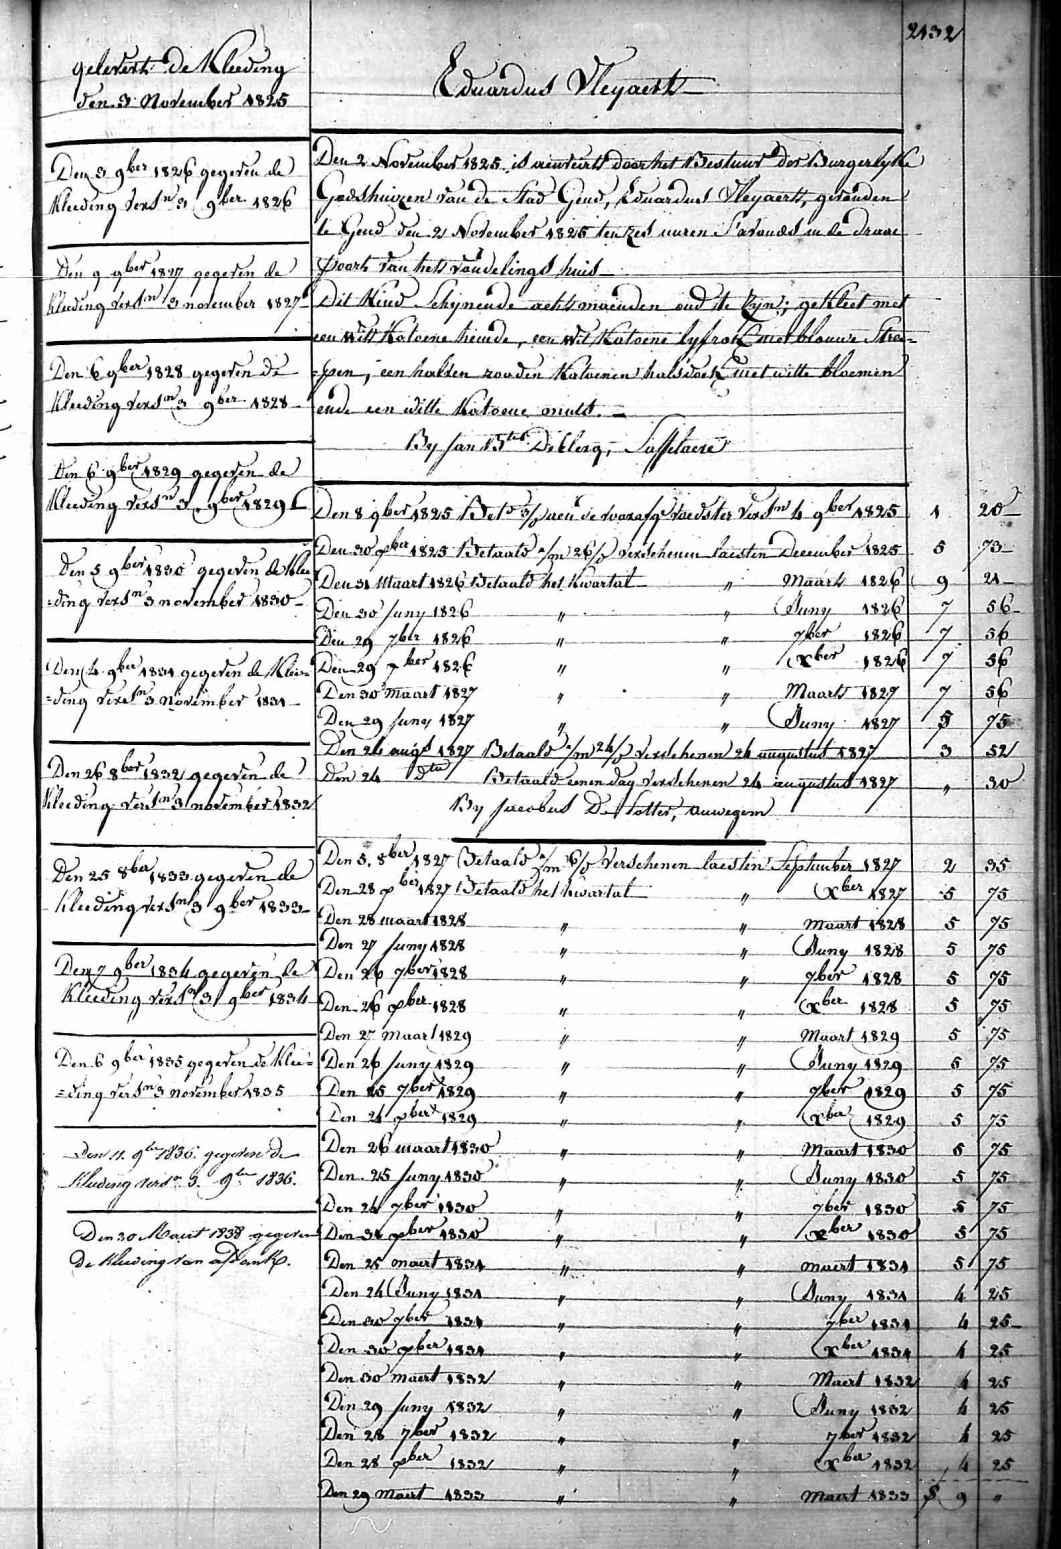 2132
gelevert de Kleeding
den 3 November 1825
Eduardus Vleyaert
Den 3 9ber 1826 gegeven de
Kleeding versn 3 9ber 1826
Den 9 9ber 1827 gegeven de
Kleeding versn 3 november 1827
Den 6 9ber 1828 gegeven de
Kleeding versn 3 9ber 1828
Den 6 9ber 1829 gegeven de
Kleeding versn 3 9ber 1829
Den 5 9ber 1830 gegeven de Klee
=ding versn 3 november 1830
Den 4 9ber 1831 gegeven de Klee=
=ding versn 3 November 1831
Den 26 8ber 1832 gegeven de
Kleeding versn 3 november 1832
Den 25 8ber 1833 gegeven de
Kleeding versn 3 9ber 1833
Den 7 9ber 1834 gegeven de
Kleeding versn 3 9ber 1834
Den 6 9ber 1835 gegeven de Klee=
=ding versn 3 november 1835
Den 11 9ber 1836 gegeven de
Kleeding versn 3 9ber 1836.
Den 30 Maert 1838 gegeven
de Kleeding van
Den 2 November 1825 is door het Bestuur der Burgerlyke
Godshuizen van de Stad Gend, Eduardus Vleyaert, gevonden
te Gend den 2 November 1825 ten zes uuren S'avonds in de draae
poort van het vondelings huis
Dit Kind Schynende acht maenden oud te zyn; gekleet met
een witt Katoene hemde, een wit Katoene lyfrok met blauwe Stree=
=pen, een halven rooden Katoenen halsdoek met witte bloemen
ende een witte Katoene muts. =
By Jan Bte De Clerq, Saffelaere
Den 8 9ber 1825 Bet. 3/ aen de voedster versn 4 9ber 1825 1 20
Den 30 xber 1825 Betaald 1/m 26/ verschenen laesten December 1825 5 73
Den 31 Maart 1826 Betaald het kwartal " Maart 1826 9 21
Den 30 Juny 1826 " " Juny 1826 7 56
Den 29 7ber 1826 " " 7ber 1826 7 56
Den 29 xber 1826 " " Xber 1826 7 56
Den 30 maart 1827 " " Maart 1827 7 56
Den 29 Juny 1827 " " Juny 1827 5 75
Den 24 augt 1827 Betaald 1/m 24/ verschenen 24 augustus 1827 3 52
Den 24 dto Betaald eenen dag verschenen 24 augustus 1827 " 30
By Jacobus De Potter, auwegem
Den 5 8ber 1827 Betaald 1/m 6/ Verschenen laesten September 1827 2 35
Den 28 xber 1827 Betaald het kwartal " Xber 1827 5 75
Den 28 maart 1828 " " Maart 1828 5 75
Den 27 Juny 1828 " " Juny 1828 5 75
Den 26 7ber 1828 " " 7ber 1828 5 75
Den 26 xber 1828 " " Xber 1828 5 75
Den 27 maart 1829 " " Maart 1829 5 75
Den 26 Juny 1829 " " Juny 1829 5 75
Den 25 7ber 1829 " " 7ber 1829 5 75
Den 24 xber 1829 " " Xber 1829 5 75
Den 26 maart 1830 " " Maart 1830 5 75
Den 25 Juny 1830 " " Juny 1830 5 75
Den 24 7ber 1830 " " 7ber 1830 5 75
Den 31 xber 1830 " " Xber 1830 5 75
Den 25 maert 1831 " " maert 1831 5 75
Den 24 Juny 1831 " " Juny 1831 4 25
Den 30 7ber 1831 " " 7ber 1831 4 25
Den 30 xber 1831 " " Xber 1831 4 25
Den 30 maert 1832 " " Maert 1832 4 25
Den 29 Juny 1832 " " Juny 1832 4 25
Den 28 7ber 1832 " " 7ber 1832 4 25
Den 28 xber 1832 " " Xber 1832 4 25
Den 29 Maert 1833 " " Maert 1833 9 "